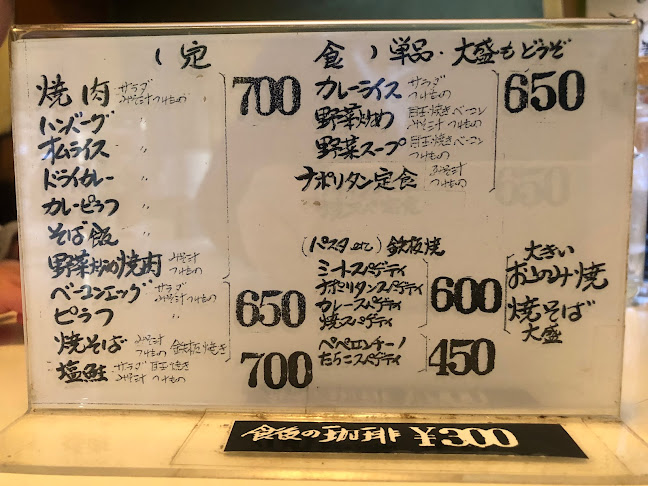 (定食) 単品・大盛もどうぞ
焼肉 サラダ みそ汁 つけもの 700
ハンバーグ 〃
オムライス 〃
ドライカレー 〃
カレーピラフ 〃
そば飯 〃
野菜炒め焼肉 みそ汁 つけもの
ベーコンエッグ サラダ みそ汁 つけもの 650
ピラフ 〃
焼そば みそ汁 つけもの 鉄板焼き 700
塩鮭 サラダ 目玉焼き みそ汁 つけもの
カレーライス サラダ つけもの 650
野菜炒め 目玉焼きベーコン みそ汁 つけもの
野菜スープ 目玉焼きベーコン つけもの
ナポリタン定食 みそ汁 つけもの
(パスタ etc) 鉄板焼
ミートスパゲティ 600
ナポリタンスパゲティ
カレースパゲティ
焼スパゲティ
大きい
お好み焼
焼そば
大盛
ペペロンチーノ 450
たらこスパゲティ
食後の珈琲 ¥300